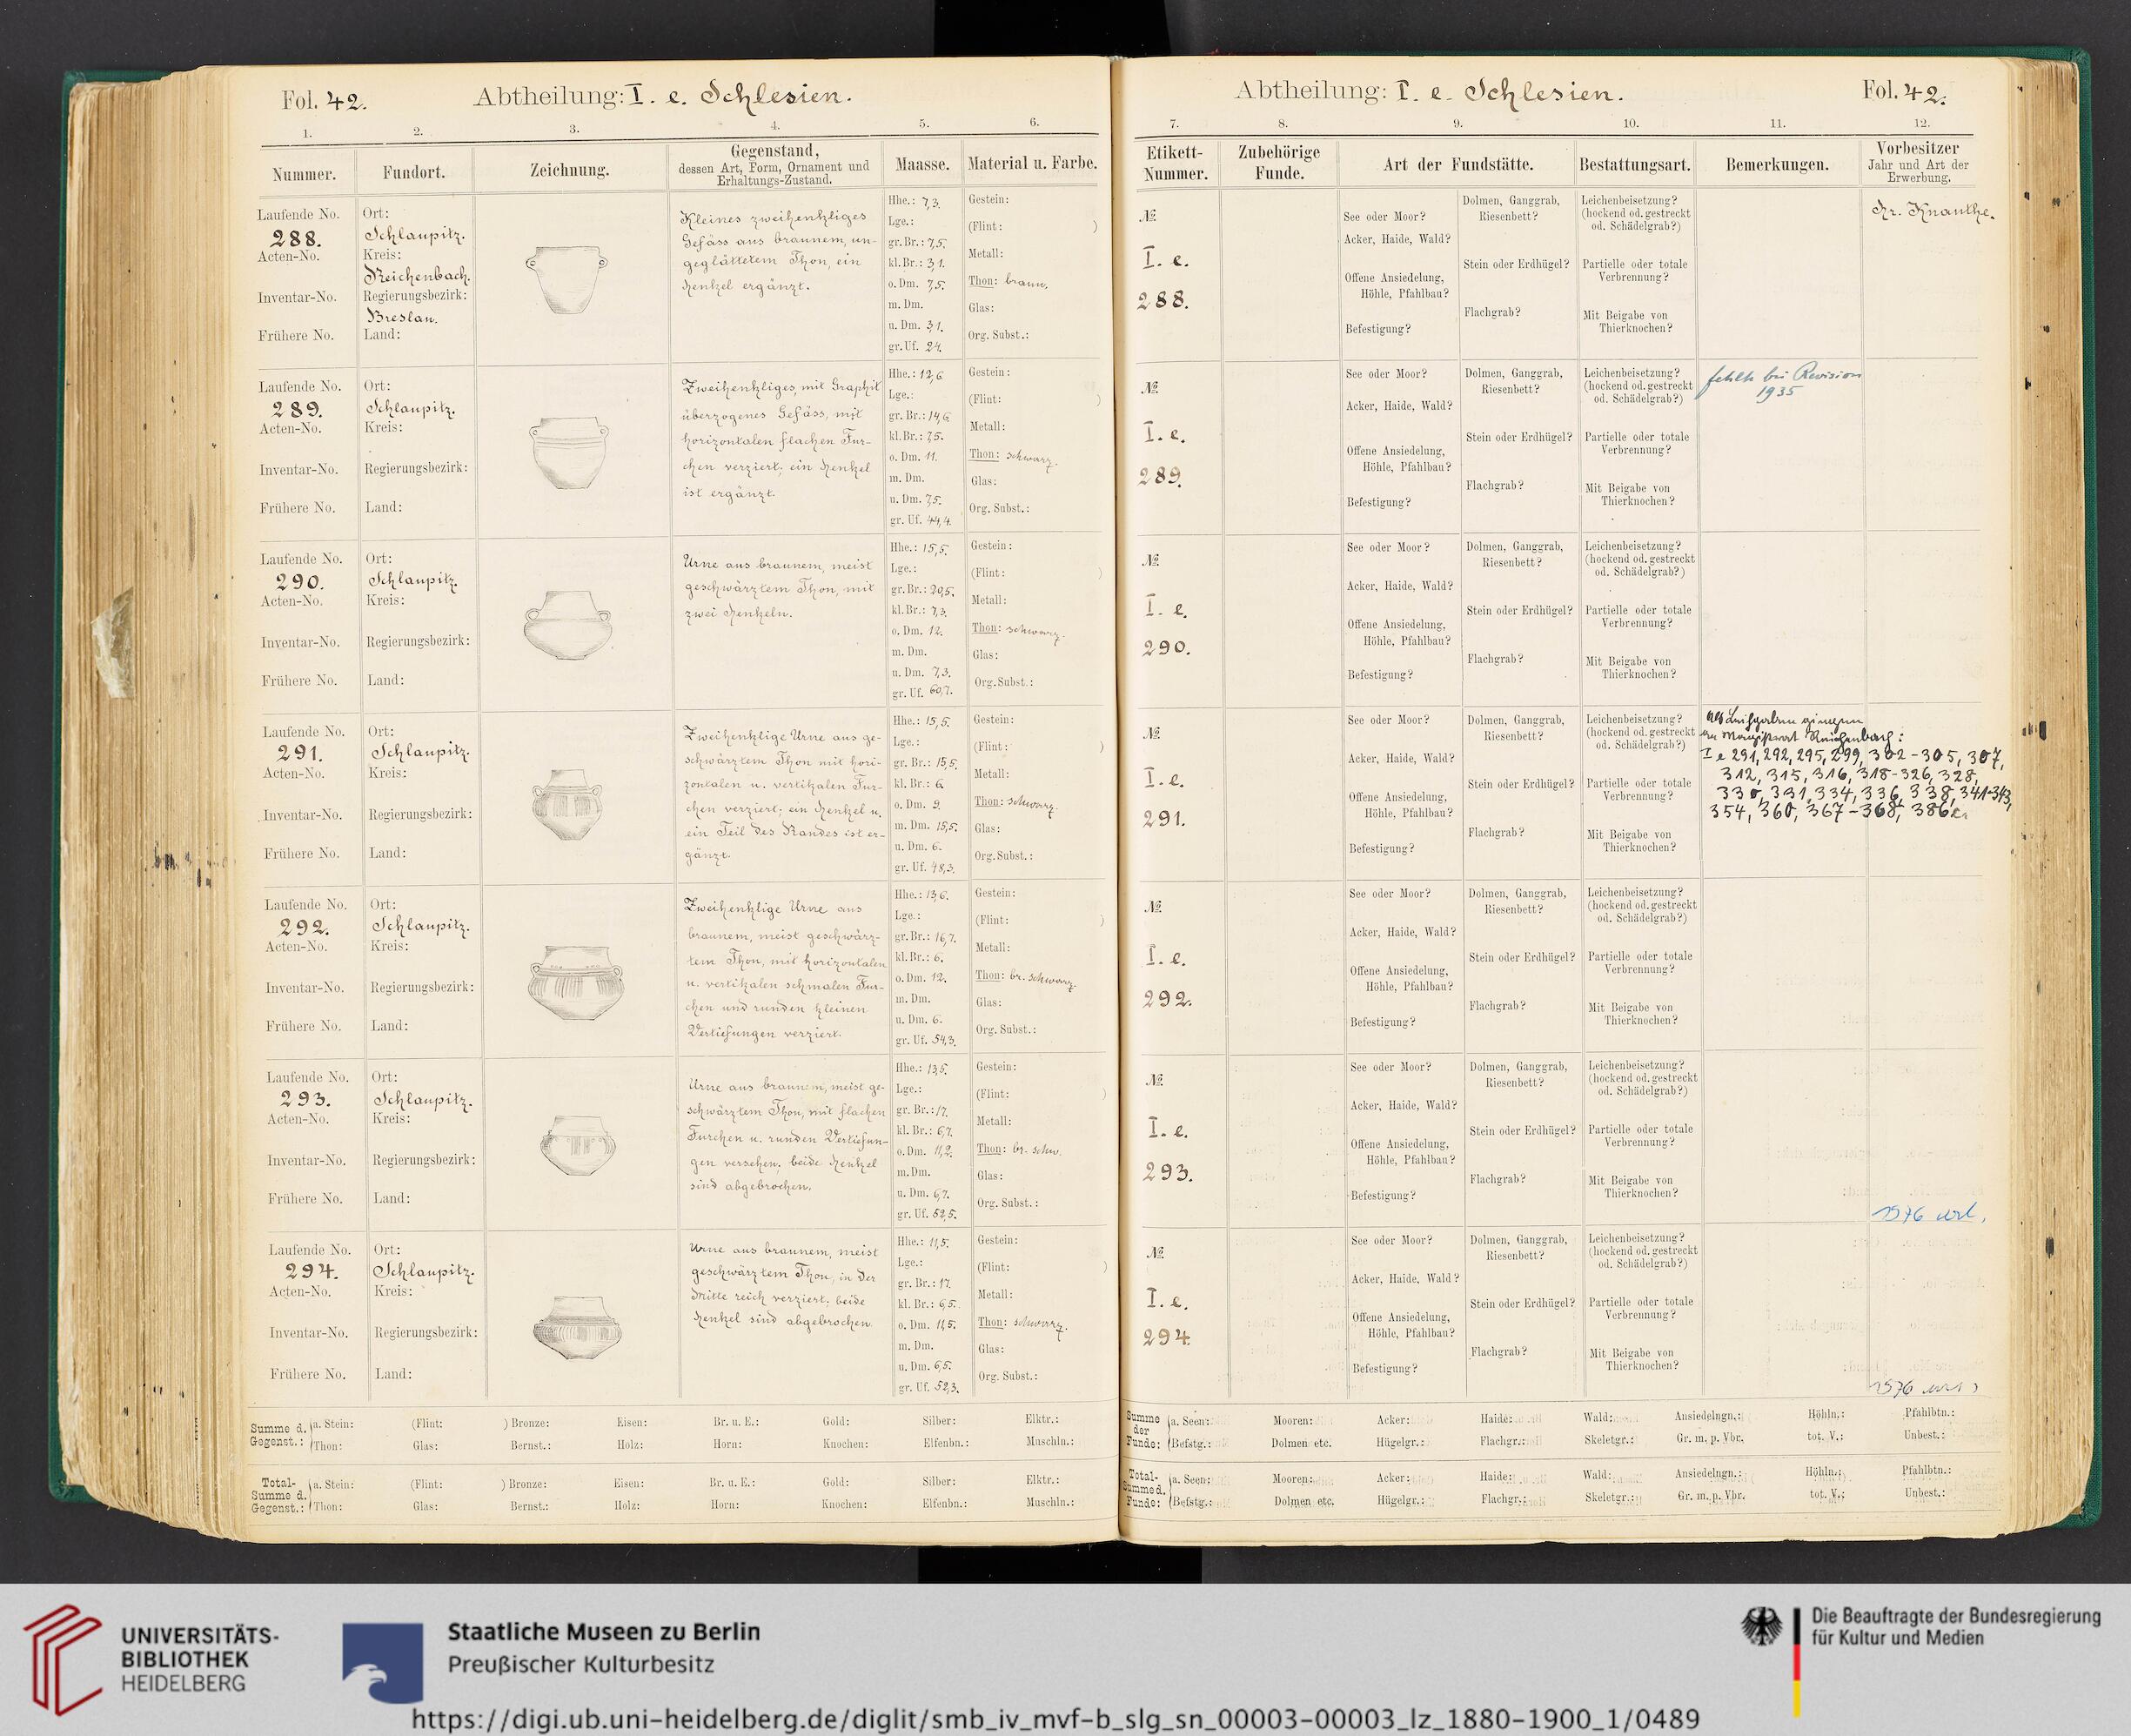 Fol. 42.
Abtheilung: I. e. Schlesien.
1. 2. 3. 4. 5. 6.
Nummer.
Fundort.
Zeichnung.
Gegenstand,
dessen Art, Form, Ornament und
Erhaltungs-Zustand.
Maasse.
Material u. Farbe.
Laufende No.
288.
Acten-No.
Inventar-No.
Frühere No.
Ort:
Schlaupitz.
Kreis:
Reichenbach.
Regierungsbezirk:
Breslau.
Land:
Kleines zweihenkliges
Gefäss aus braunem, un-
geglättetem Thon, ein
Henkel ergänzt.
Hhe.: 7,3.
Lge.:
gr. Br.: 7,5.
kl. Br.: 3,1.
o. Dm. 7,5.
m. Dm.
u. Dm. 3,1.
gr. Uf. 24.
Gestein:
(Flint: )
Metall:
Thon: braun.
Glas:
Org. Subst.:
Laufende No.
289.
Acten-No.
Inventar-No.
Frühere No.
Ort:
Schlaupitz.
Kreis:
Regierungsbezirk:
Land:
Zweihenkliges, mit Graphit
überzogenes Gefäss, mit
horizontalen flachen Fur-
chen verziert; ein Henkel
ist ergänzt.
Hhe.: 12,6
Lge.:
gr. Br.: 14,6
kl. Br.: 7,5.
o. Dm. 11.
m. Dm.
u. Dm. 7,5.
gr. Uf. 44,4.
Gestein:
(Flint: )
Metall:
Thon: schwarz.
Glas:
Org. Subst.:
Laufende No.
290.
Acten-No.
Inventar-No.
Frühere No.
Ort:
Schlaupitz.
Kreis:
Regierungsbezirk:
Land:
Urne aus braunem, meist
geschwärztem Thon, mit
zwei Henkeln.
Hhe.: 15,5.
Lge.:
gr. Br.: 20,5.
kl. Br.: 7,3.
o. Dm. 12.
m. Dm.
u. Dm. 7,3.
gr. Uf. 60,7.
Gestein:
(Flint: )
Metall:
Thon: schwarz.
Glas:
Org. Subst.:
Laufende No.
291.
Acten-No.
Inventar-No.
Frühere No.
Ort:
Schlaupitz.
Kreis:
Regierungsbezirk:
Land:
Zweihenklige Urne aus ge-
schwärztem Thon mit hori-
zontalen u. vertikalen Fur-
chen verziert; ein Henkel u.
ein Teil des Randes ist er-
gänzt.
Hhe.: 15,5.
Lge.:
gr. Br.: 15,5.
kl. Br.: 6.
o. Dm. 9.
m. Dm. 15,5.
u. Dm. 6.
gr. Uf. 48,3.
Gestein:
(Flint: )
Metall:
Thon: schwarz.
Glas:
Org. Subst.:
Laufende No.
292.
Acten-No.
Inventar-No.
Frühere No.
Ort:
Schlaupitz.
Kreis:
Regierungsbezirk:
Land:
Zweihenklige Urne aus
braunem, meist geschwärz-
tem Thon, mit horizontalen
u. vertikalen schmalen Fur-
chen und runden kleinen
Vertiefungen verziert.
Hhe.: 13,6.
Lge.:
gr. Br.: 16,7.
kl. Br.: 6.
o. Dm. 12.
m. Dm.
u. Dm. 6.
gr. Uf. 54,3.
Gestein:
(Flint: )
Metall:
Thon: br. schwarz.
Glas:
Org. Subst.:
Laufende No.
293.
Acten-No.
Inventar-No.
Frühere No.
Ort:
Schlaupitz.
Kreis:
Regierungsbezirk:
Land:
Urne aus braunem, meist ge-
schwärztem Thon, mit flachen
Furchen u. runden Vertiefun-
gen versehen, beide Henkel
sind abgebrochen.
Hhe.: 13,5.
Lge.:
gr. Br.: 17.
kl. Br.: 6,7.
o. Dm. 11,2.
m. Dm.
u. Dm. 6,7.
gr. Uf. 52,5.
Gestein:
(Flint: )
Metall:
Thon: br. schw.
Glas:
Org. Subst.:
Laufende No.
294.
Acten-No.
Inventar-No.
Frühere No.
Ort:
Schlaupitz.
Kreis:
Regierungsbezirk:
Land:
Urne aus braunem, meist
geschwärztem Thon, in der
Mitte reich verziert; beide
Henkel sind abgebrochen.
Hhe.: 11,5.
Lge.:
gr. Br.: 17.
kl. Br.: 6,5.
o. Dm. 11,5.
m. Dm.
u. Dm. 6,5.
gr. Uf. 52,3.
Gestein:
(Flint: )
Metall:
Thon: schwarz.
Glas:
Org. Subst.:
Summe d. Gegenst.:
a. Stein: (Flint: ) Bronze: Eisen: Br. u. E.: Gold: Silber: Elktr.:
Thon: Glas: Bernst.: Holz: Horn: Knochen: Elfenbn.: Muschln.:
Total-Summe d. Gegenst.:
a. Stein: (Flint: ) Bronze: Eisen: Br. u. E.: Gold: Silber: Elktr.:
Thon: Glas: Bernst.: Holz: Horn: Knochen: Elfenbn.: Muschln.:
Abtheilung: I. e. Schlesien.
Fol. 42.
7. 8. 9. 10. 11. 12.
Etikett-
Nummer.
Zubehörige
Funde.
Art der Fundstätte.
Bestattungsart.
Bemerkungen.
Vorbesitzer
Jahr und Art der
Erwerbung.
№
I. e.
288.
See oder Moor?
Acker, Haide, Wald?
Offene Ansiedelung,
Höhle, Pfahlbau?
Befestigung?
Dolmen, Ganggrab,
Riesenbett?
Stein oder Erdhügel?
Flachgrab?
Leichenbeisetzung?
(hockend od. gestreckt
od. Schädelgrab?)
Partielle oder totale
Verbrennung?
Mit Beigabe von
Thierknochen?
Hr. Knauthe.
№
I. e.
289.
See oder Moor?
Acker, Haide, Wald?
Offene Ansiedelung,
Höhle, Pfahlbau?
Befestigung?
Dolmen, Ganggrab,
Riesenbett?
Stein oder Erdhügel?
Flachgrab?
Leichenbeisetzung?
(hockend od. gestreckt
od. Schädelgrab?)
Partielle oder totale
Verbrennung?
Mit Beigabe von
Thierknochen?
fehlte bei Revision
1935
№
I. e.
290.
See oder Moor?
Acker, Haide, Wald?
Offene Ansiedelung,
Höhle, Pfahlbau?
Befestigung?
Dolmen, Ganggrab,
Riesenbett?
Stein oder Erdhügel?
Flachgrab?
Leichenbeisetzung?
(hockend od. gestreckt
od. Schädelgrab?)
Partielle oder totale
Verbrennung?
Mit Beigabe von
Thierknochen?
№
I. e.
291.
See oder Moor?
Acker, Haide, Wald?
Offene Ansiedelung,
Höhle, Pfahlbau?
Befestigung?
Dolmen, Ganggrab,
Riesenbett?
Stein oder Erdhügel?
Flachgrab?
Leichenbeisetzung?
(hockend od. gestreckt
od. Schädelgrab?)
Partielle oder totale
Verbrennung?
Mit Beigabe von
Thierknochen?
Als Leihgaben gingen
an Magistrat Reichenbach:
I e 291, 292, 295, 299, 302-305, 307,
312, 315, 316, 318-326, 328,
330, 331, 334, 336, 338, 341-343,
354, 360, 367-368, 386
№
I. e.
292.
See oder Moor?
Acker, Haide, Wald?
Offene Ansiedelung,
Höhle, Pfahlbau?
Befestigung?
Dolmen, Ganggrab,
Riesenbett?
Stein oder Erdhügel?
Flachgrab?
Leichenbeisetzung?
(hockend od. gestreckt
od. Schädelgrab?)
Partielle oder totale
Verbrennung?
Mit Beigabe von
Thierknochen?
№
I. e.
293.
See oder Moor?
Acker, Haide, Wald?
Offene Ansiedelung,
Höhle, Pfahlbau?
Befestigung?
Dolmen, Ganggrab,
Riesenbett?
Stein oder Erdhügel?
Flachgrab?
Leichenbeisetzung?
(hockend od. gestreckt
od. Schädelgrab?)
Partielle oder totale
Verbrennung?
Mit Beigabe von
Thierknochen?
1976
№
I. e.
294
See oder Moor?
Acker, Haide, Wald?
Offene Ansiedelung,
Höhle, Pfahlbau?
Befestigung?
Dolmen, Ganggrab,
Riesenbett?
Stein oder Erdhügel?
Flachgrab?
Leichenbeisetzung?
(hockend od. gestreckt
od. Schädelgrab?)
Partielle oder totale
Verbrennung?
Mit Beigabe von
Thierknochen?
1976
Summe der Funde:
a. Seen: Mooren: Acker: Haide: Wald: Ansiedelngn.: Höhln.: Pfahlbtn.:
Befstg.: Dolmen etc. Hügelgr.: Flachgr.: Skeletgr.: Gr. m. p. Vbr. tot. V.: Unbest.:
Total-Summe d. Funde:
a. Seen: Mooren: Acker: Haide: Wald: Ansiedelngn.: Höhln.: Pfahlbtn.:
Befstg.: Dolmen etc. Hügelgr.: Flachgr.: Skeletgr.: Gr. m. p. Vbr. tot. V.: Unbest.:
UNIVERSITÄTS-
BIBLIOTHEK
HEIDELBERG
Staatliche Museen zu Berlin
Preußischer Kulturbesitz
Die Beauftragte der Bundesregierung
für Kultur und Medien
https://digi.ub.uni-heidelberg.de/diglit/smb_iv_mvf-b_slg_sn_00003-00003_lz_1880-1900_1/0489